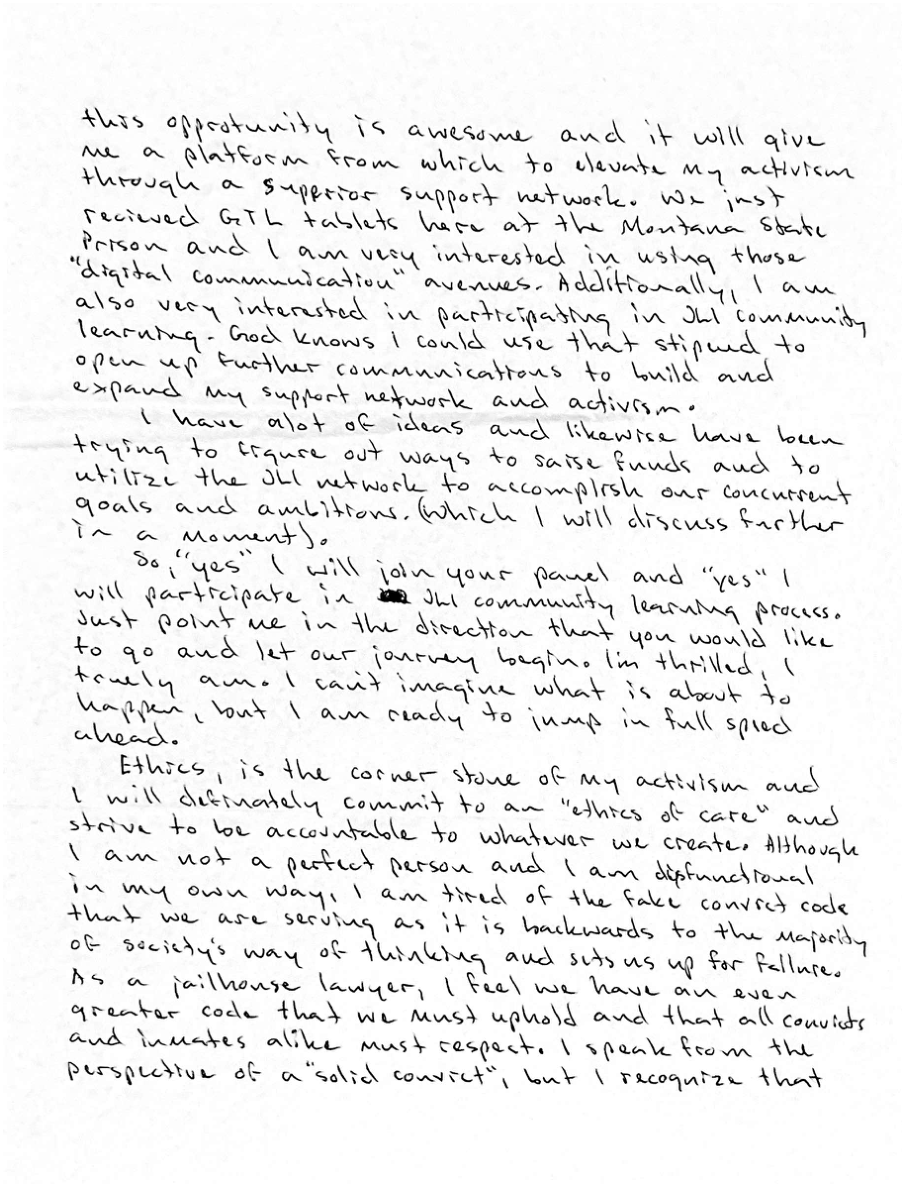 this opprotunity is awesome and it will give
me a platform from which to elevate my activism
through a superior support network. We just
recieved GTL tablets here at the Montana State
Prison and I am very interested in using those
"digital communication" avenues. Additionally, I am
also very interested in participating in JLI community
learning. God knows I could use that stipend to
open up further communications to build and
expand my support network and activism.
I have alot of ideas and likewise have been
trying to figure out ways to raise funds and to
utilize the JLI network to accomplish our concurrent
goals and ambitions. (which I will discuss further
in a moment).
So, "yes" I will join your panel and "yes" I
will participate in JLI community learning process.
Just point me in the direction that you would like
to go and let our journey begin. I'm thrilled, I
truely am. I can't imagine what is about to
happen, but I am ready to jump in full speed
ahead.
Ethics, is the corner stone of my activism and
I will definately commit to an "ethics of care" and
strive to be accountable to whatever we create. Although
I am not a perfect person and I am disfunctional
in my own way, I am tired of the fake convict code
that we are serving as it is backwards to the majority
of society's way of thinking and sets us up for failure.
As a jailhouse lawyer, I feel we have an even
greater code that we must uphold and that all convicts
and inmates alike must respect. I speak from the
perspective of a "solid convict", but I recognize that